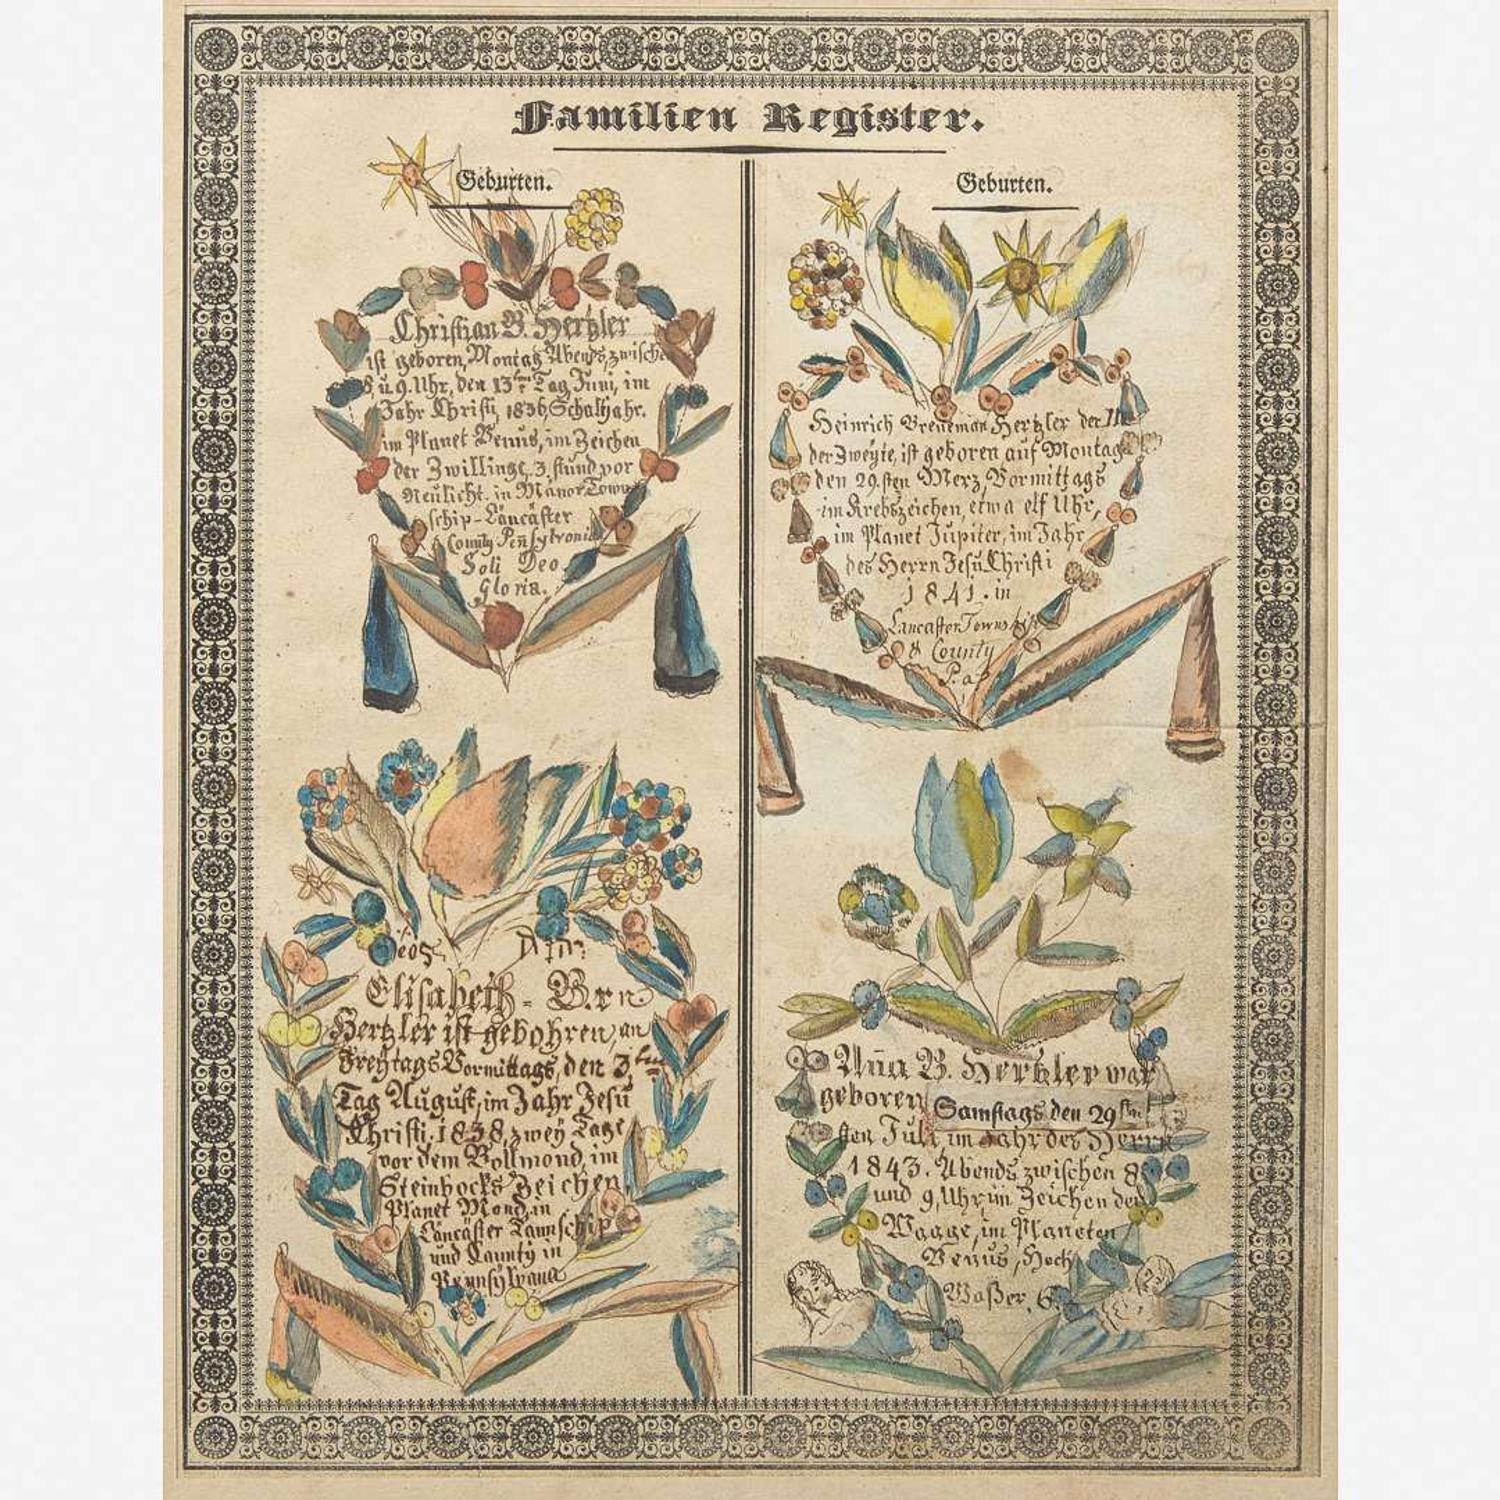 Familien Register.
Geburten.
Christian B. Hertzler
ist geboren, Montag Abends, zwische
8 u. 9. Uhr, den 13ten Tag Juni, im
Jahr Christi, 1836, Schaltjahr.
im Planet Venus, im Zeichen
der Zwillinge, 3. stund vor
Neulicht. in Manor Town
schip - Lancäster
County Peñsylvania
Soli Deo
Gloria.
Elisabeth - Brn
Hertzler ist gebohren, an
Freytags Vormittags, den 3ten
Tag August, im Jahr Jesu
Christi. 1838, zwey Tage
vor dem Vollmond, im
Steinbocks Zeichen
Planet Mond, in
Lancäster Taunschip
und Caunty in
Pennsylvana
Geburten.
Heinrich Breneman Hertzler der
der Zweyte, ist geboren auf Montag
den 29.sten Merz, Vormittags
im Krebszeichen, etwa elf Uhr,
im Planet Jupiter, im Jahr
des Herrn Jesu Christi
1841. in
Lancaster Township
& County
Pa
Aña B. Hertzler war
geboren Samstags den 29sten
sten Juli, im Jahr des Herrn
1843. Abends zwischen 8
und 9, Uhr im Zeichen der
Waage, im Planeten
Venus, Hoch
Waßer, 6.